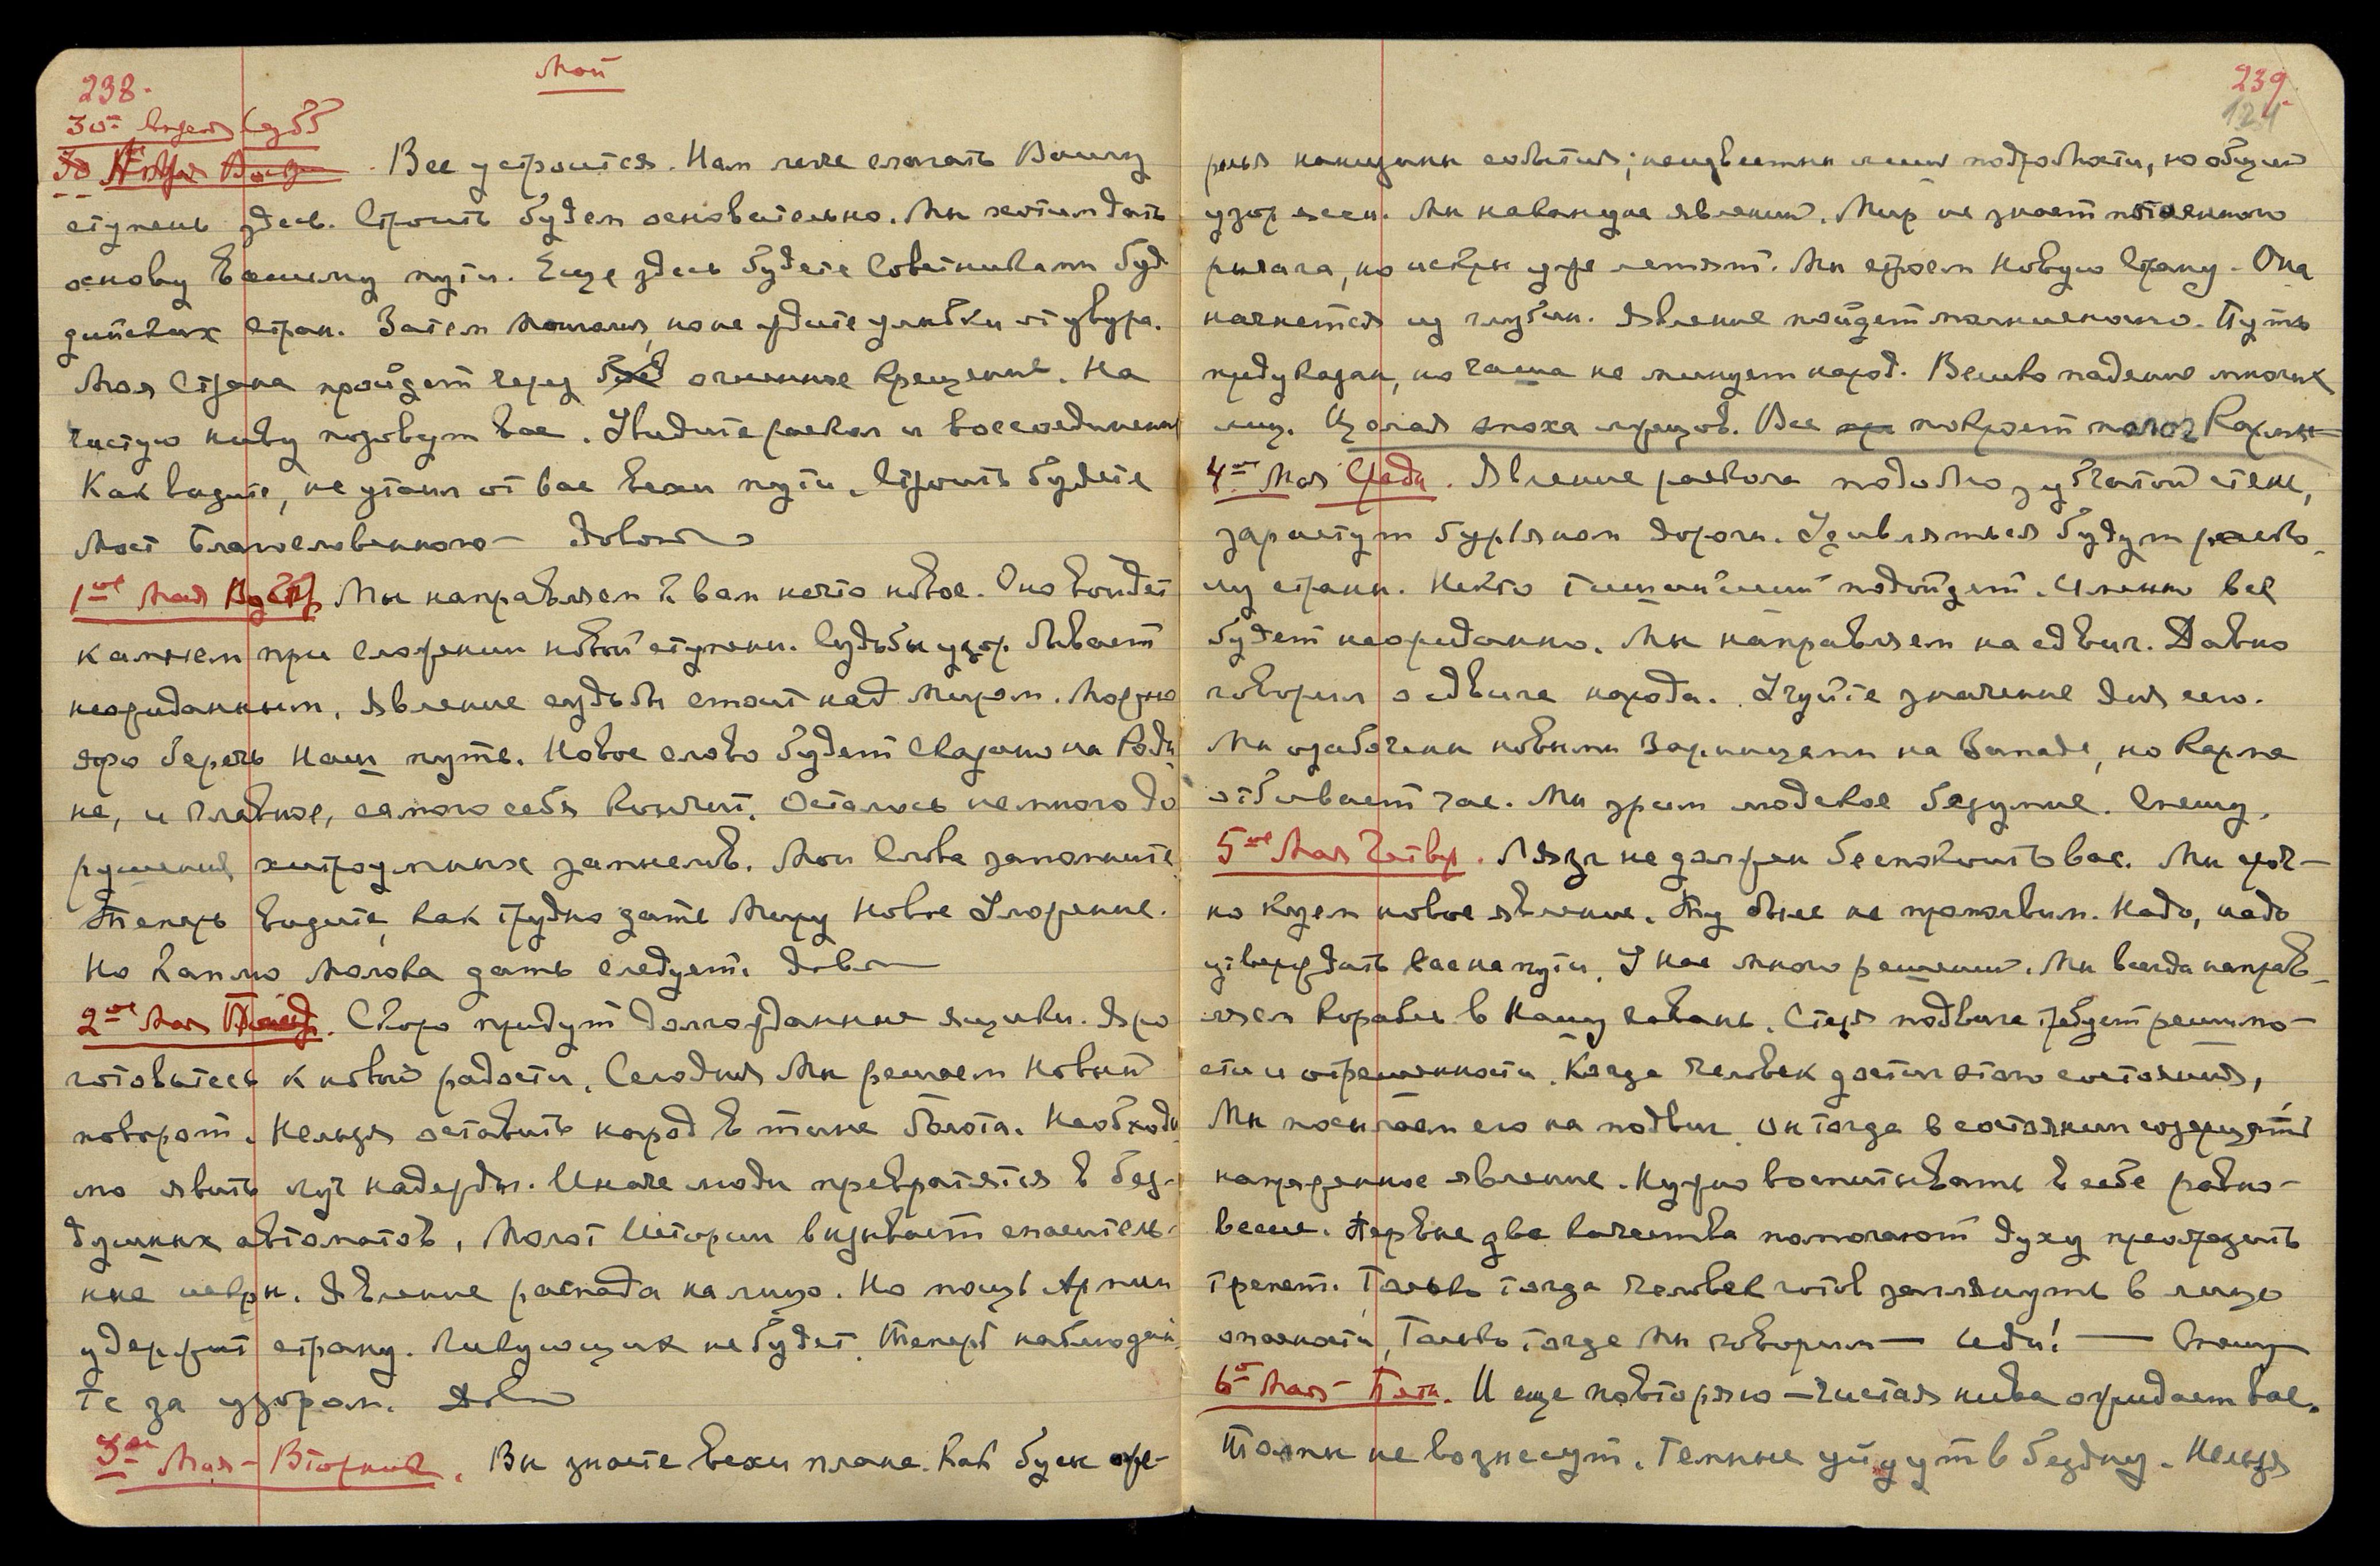 238.
Май
30ое Апреля Субб
30 Апреля
Все устроится. Нам легче сложить Вашу
ступень здесь. Строить будем основательно. Мы хотим дать
основу Вашему пути. Еще здесь будете Советниками Буд
дийских стран. Затем но не ждите улыбки от
Моя Страна пройдет через огненное Крещение. На
чистую ниву позовут вас. Увидите раскол и воссоединение
Как видите, не утаил от вас вехи пути. Строить будете
Мост Благословенного — Довольно
1ое Мая Воскр Мы направляем к вам нечто новое. Оно войдет
камнем при сложении новой ступени. Судьбы узор бывает
неожиданным. Явление судьбы стоит над Миром. Можно
яро беречь Наш путь. Новое слово будет сказано на Роди
не, и главное, самого себя кончит. Осталось немного до
рушения хитроумных замыслов. Мои Слова запомните
Теперь видите, как трудно дать Миру Новое Уложение.
Но каплю молока дать следует. Довольно
2ое Мая Понед. Скоро придут долгожданные ящики. Яро
готовьтесь к новой радости. Сегодня Мы решаем Новый
поворот. Нельзя оставить народ в тине болота. Необходи
мо явить луч надежды. Иначе люди превратятся в без-
душных автоматов. Молот Истории вызывает спаситель-
ные искры. Явление распада налицо. Но мощь Армии
удержит страну. Ликующих не будет. Теперь наблюдай
те за узором. Довольно
3ье Мая — Вторник. Вы знаете вехи плана. Как бусы оже-
239.
124
релья нанизаны события; неизвестны лишь подробности, но общий
узор ясен. Мы накануне явлений. Мир не знает потаенного
рычага, но искры уже летят. Мы строим Новую Страну. Она
начнется из глубин. Явление пойдет молниеносно. Путь
предуказан, но чаша не минует народ. Велико падение многих
лиц. Целая эпоха лжецов. Все покроет полог Кармы —
4ое Мая Среда. Явление раскола подобно зубчатой стене,
зарастут бурьяном дороги. Удивляться будут раско-
лу страны. Некто тишайший подойдет. Именно все
будет неожиданно. Мы направляем на сдвиг. Давно
говорил о сдвиге народа. Учуйте значение дня сего.
Мы озабочены новыми Зарницами на Западе, но Карма
отбивает час. Мы зрим людское безумие. Спешу.
5ое Мая Четверг. Лязг не должен беспокоить вас. Мы
но куем новое явление. не Надо, надо
утверждать вас на пути. У нас много решений. Мы всегда направ-
ляем корабль в Нашу гавань. Стезя подвига требует решимо-
сти и отрешенности. Когда человек достиг этого состояния,
Мы посылаем его на подвиг. Он тогда в состоянии созерцать
напряженное явление. Нужно воспитывать в себе равно-
весие. Первые два качества помогают духу преодолеть
трепет. Только тогда человек готов заглянуть в лицо
опасности, Только тогда Мы говорим — Иди! — Спешу
6ое Мая — Пятн. И еще повторяю — чистая нива ожидает вас.
Толпы не вознесут. Темные уйдут в бездну. Нельзя